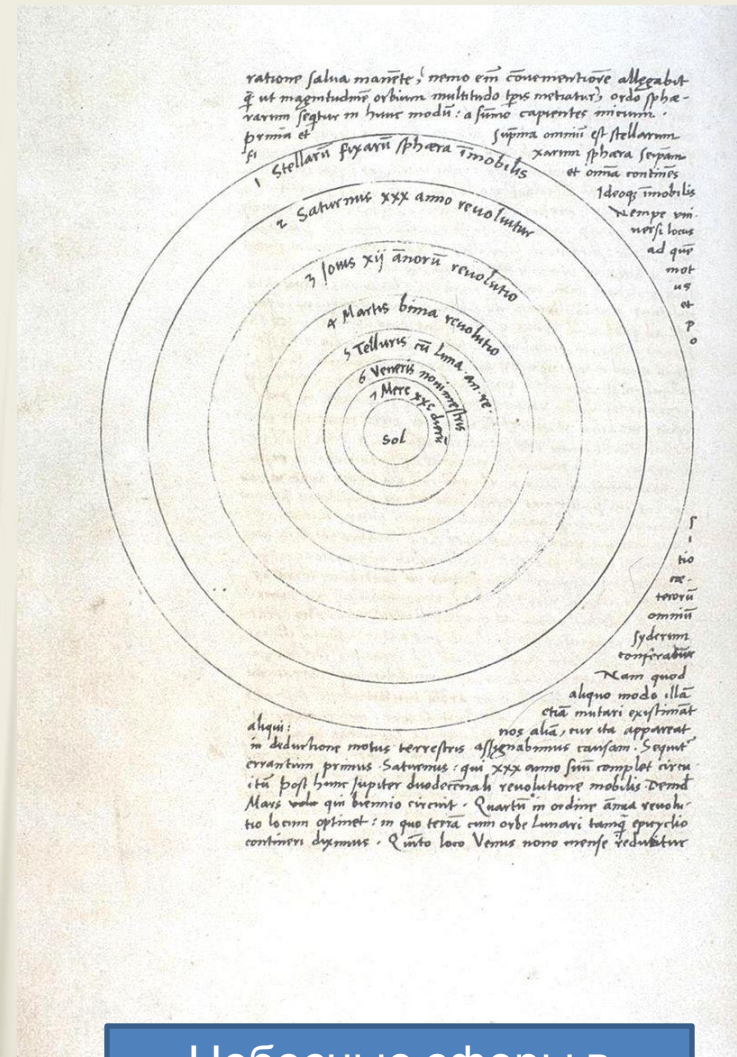 ratione salua manēte, nemo em̄ cōuenientiorē allegabit
q̄ ut magnitudinē orbium multitudo tp̄is metiatur, ordo sphæ-
rarum seqtur in hunc modū: a sūmo capientes initium.
prima et
si
sup̄ma omniū est stellarum
xarum sphæra seipam
et omīa continēs
Ideoq; īmobilis
Nempe vni
uersi locus
ad quē
mot
us
et
p
o
1 Stellarū fixarū sphæra īmobilis
2 Saturnus xxx anno reuoluitur
3 Iouis xij ānorū reuolutio
4 Martis bima reuolutio
5 Telluris cū Luna an. re.
6 Veneris nonimestris
7 Merc xxc dierū
Sol
s
i
tio
cæ-
terorū
omniū
syderum
conferatur
Nam quod
aliquo modo illā
etiā mutari existimāt
aliqui:
nos aliā, cur ita appareat
in deductione motus terrestris assignabimus causam. Sequit
errantium primus Saturnus: qui xxx anno suū complet circu
itū post hunc Iupiter duodecennali reuolutione mobilis Demū
Mars qui biennio circuit. Quartū in ordine ānua reuolu-
tio locum optinet: in quo terrā cum orbe Lunari tamq̄ epicyclio
contineri diximus. Quinto loco Venus nono mense reducitur
Небесные сферы в